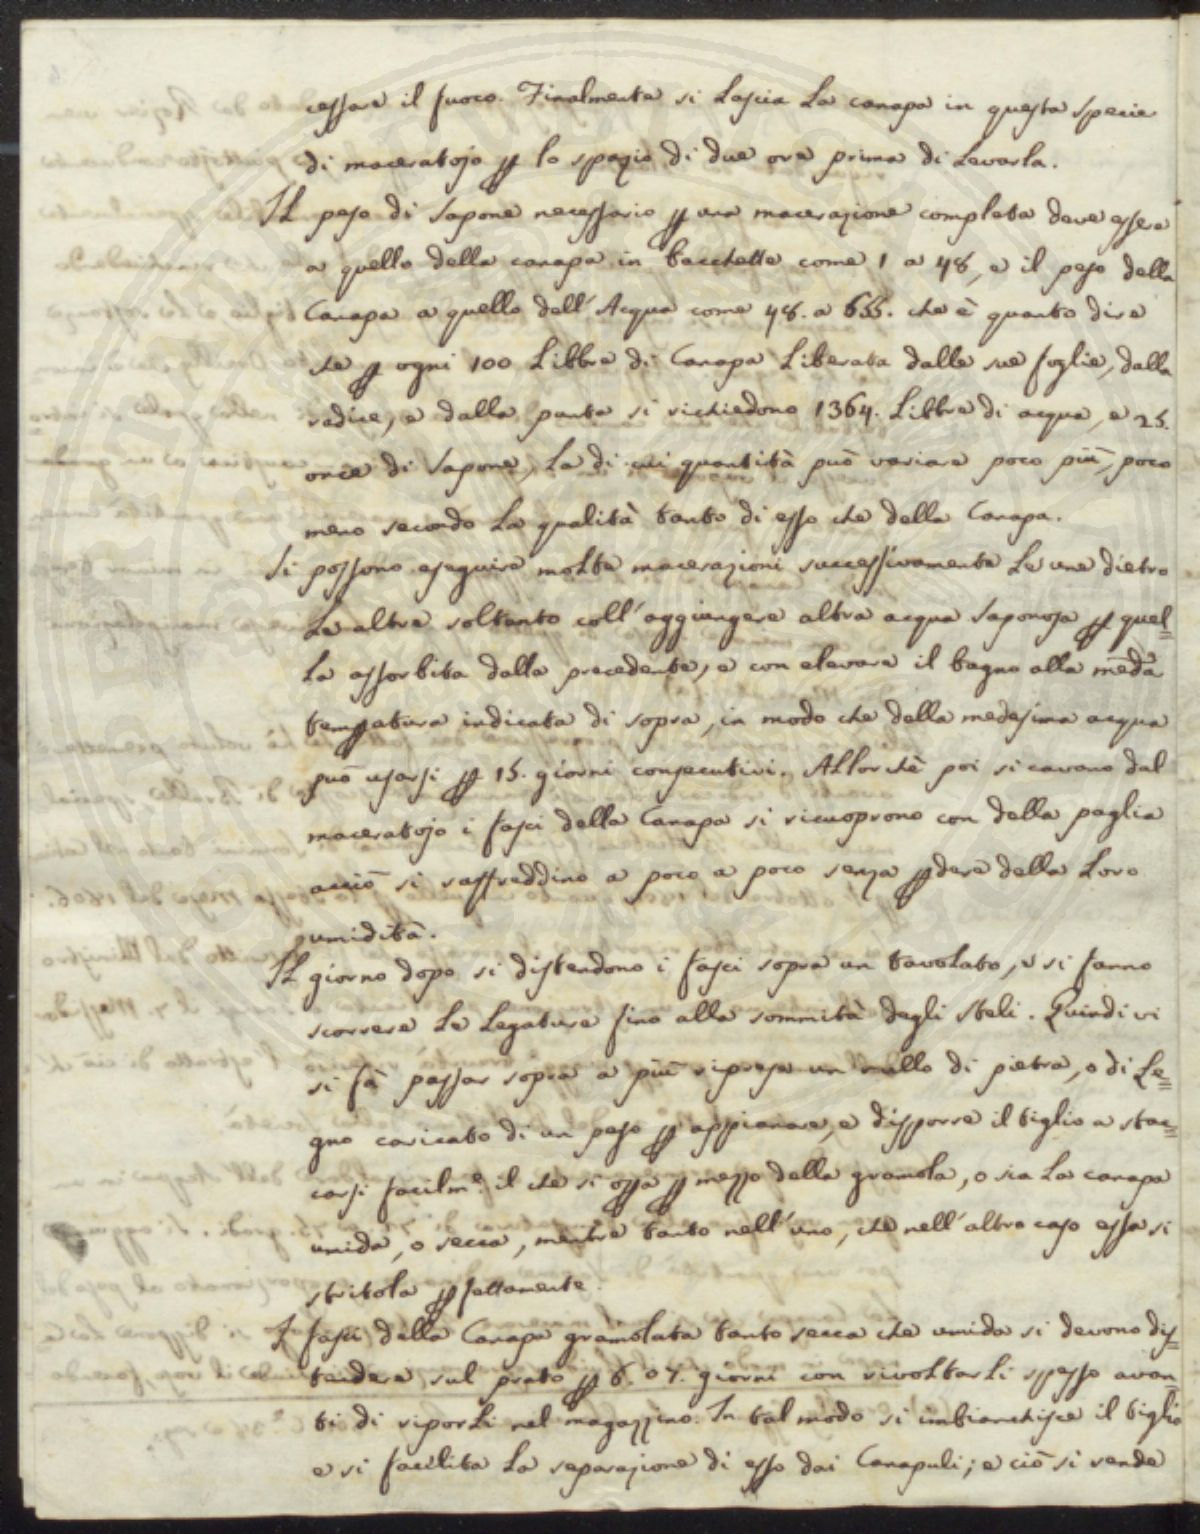 cessare il fuoco. Finalmente si lascia la canapa in questa specie
di maceratojo p lo spazio di due ore prima di levarla.
Il peso di sapone necessario p una macerazione completa deve essere
a quello della canapa in bacchette come 1 a 48, e il peso della
Canapa a quello dell'Acqua come 48. a 655. che è quanto dire
che p ogni 100 libbre di Canapa liberata dalle sue foglie, dalla
radice, e dalla punta si richiedono 1364. libbre di acqua, e 25.
once di sapone, la di cui quantità può variare poco più, poco
meno secondo la qualità tanto di esso che della Canapa.
Si possono eseguire molte macerazioni successivamente le une dietro
le altre soltanto coll'aggiungere altra acqua saponosa p quel=
la assorbita dalla precedente, e con elevare il bagno alla meda
tempatura indicata di sopra, in modo che della medesima acqua
può usarsi p 15. giorni consecutivi. Allorchè poi si cavano dal
maceratojo i fasci della Canapa si ricuoprono con della paglia
acciò si raffreddino a poco a poco senza pdere della loro
umidità.
Il giorno dopo si distendono i fasci sopra un tavolato, e si fanno
scorrere le legature fino alla sommità degli steli. Quindi vi
si fà passar sopra a più riprese un rullo di pietra, o di le=
gno caricato di un peso p appianare, e disporre il tiglio a stac=
carsi facilme. il che si opa p mezzo della gramola, o sia la canapa
umida, o secca, mentre tanto nell'uno, che nell'altro caso essa si
stritola pfettamente.
I fasci della Canapa gramolata tanto secca che umida si devono dis=
tendere sul prato p 6. o 7. giorni con rivoltarli spesso avan=
ti di riporli nel magazzino. In tal modo si imbianchisce il tiglio
e si facilita la separazione di esso dai Canapuli; e ciò si rende